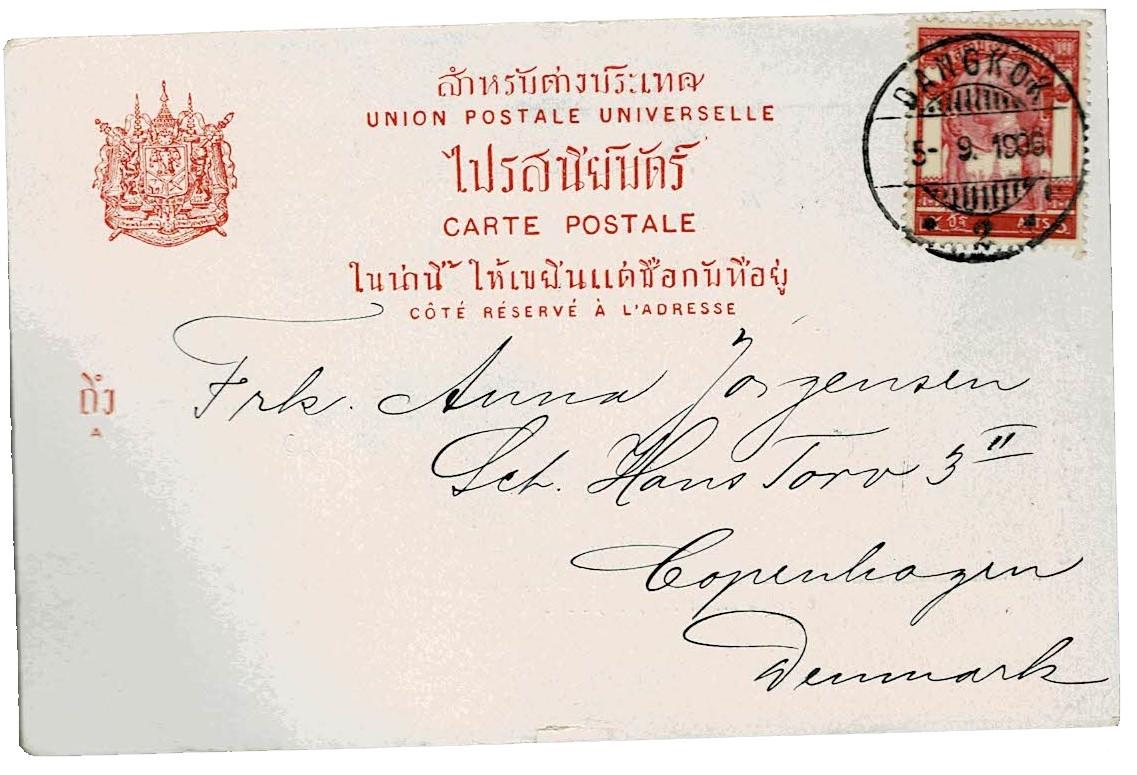 สำหรับต่างประเทศ
UNION POSTALE UNIVERSELLE
ไปรสนีย์บัตร์
CARTE POSTALE
ในน่านี้ ให้เขียนแต่ชื่อกับที่อยู่
CÔTÉ RÉSERVÉ À L'ADRESSE
BANGKOK
5- 9. 1906
2
ถึง
A
Frk. Anna Jörgensen
Sct. Hans Torv 3 II
Copenhagen
Denmark